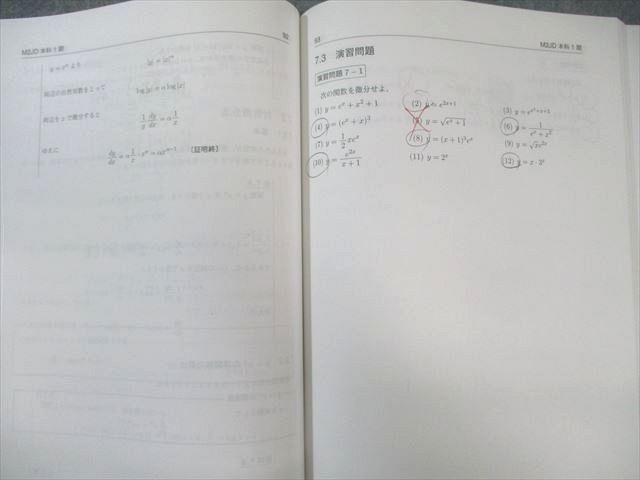 92
M2JD 本科1期
y = x^α より
|y| = |x|^α
両辺の自然対数をとって
log |y| = α log |x|
両辺を x で微分すると
1/y dy/dx = α 1/x
ゆえに
dy/dx = α 1/x · x^α = αx^(α−1) 〔証明終〕
93
M2JD 本科1期
7.3 演習問題
演習問題 7－1
次の関数を微分せよ。
(1) y = e^x + x^2 + 1 (2) y = e^(2x+1) (3)
(4) y = (e^x + x)^3 y = √(e^x + 1) (6) y = 1/(e^x + x^2)
(7) y = 1/2 xe^x (8) y = (x + 1)^3 e^x (9)
(10) y = e^(2x)/(x + 1) (11) y = 2^x (12) y = x · 2^x